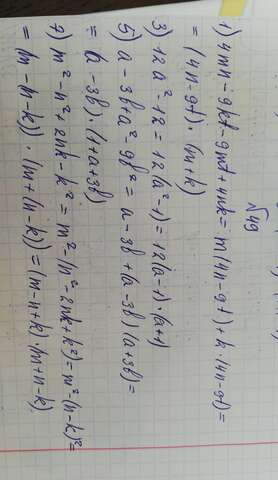 №49
1) 4mn - 9kt - 9mt + 4nk = m(4n - 9t) + k·(4n - 9t) =
= (4n - 9t)·(m + k)
3) 12a² - 12 = 12(a² - 1) = 12(a - 1)·(a + 1)
5) a - 3b + a² - 9b² = a - 3b + (a - 3b)(a + 3b) =
= (a - 3b)·(1 + a + 3b)
7) m² - n² + 2nk - k² = m² - (n² - 2nk + k²) = m² - (n - k)² =
= (m - (n - k))·(m + (n - k)) = (m - n + k)·(m + n - k)